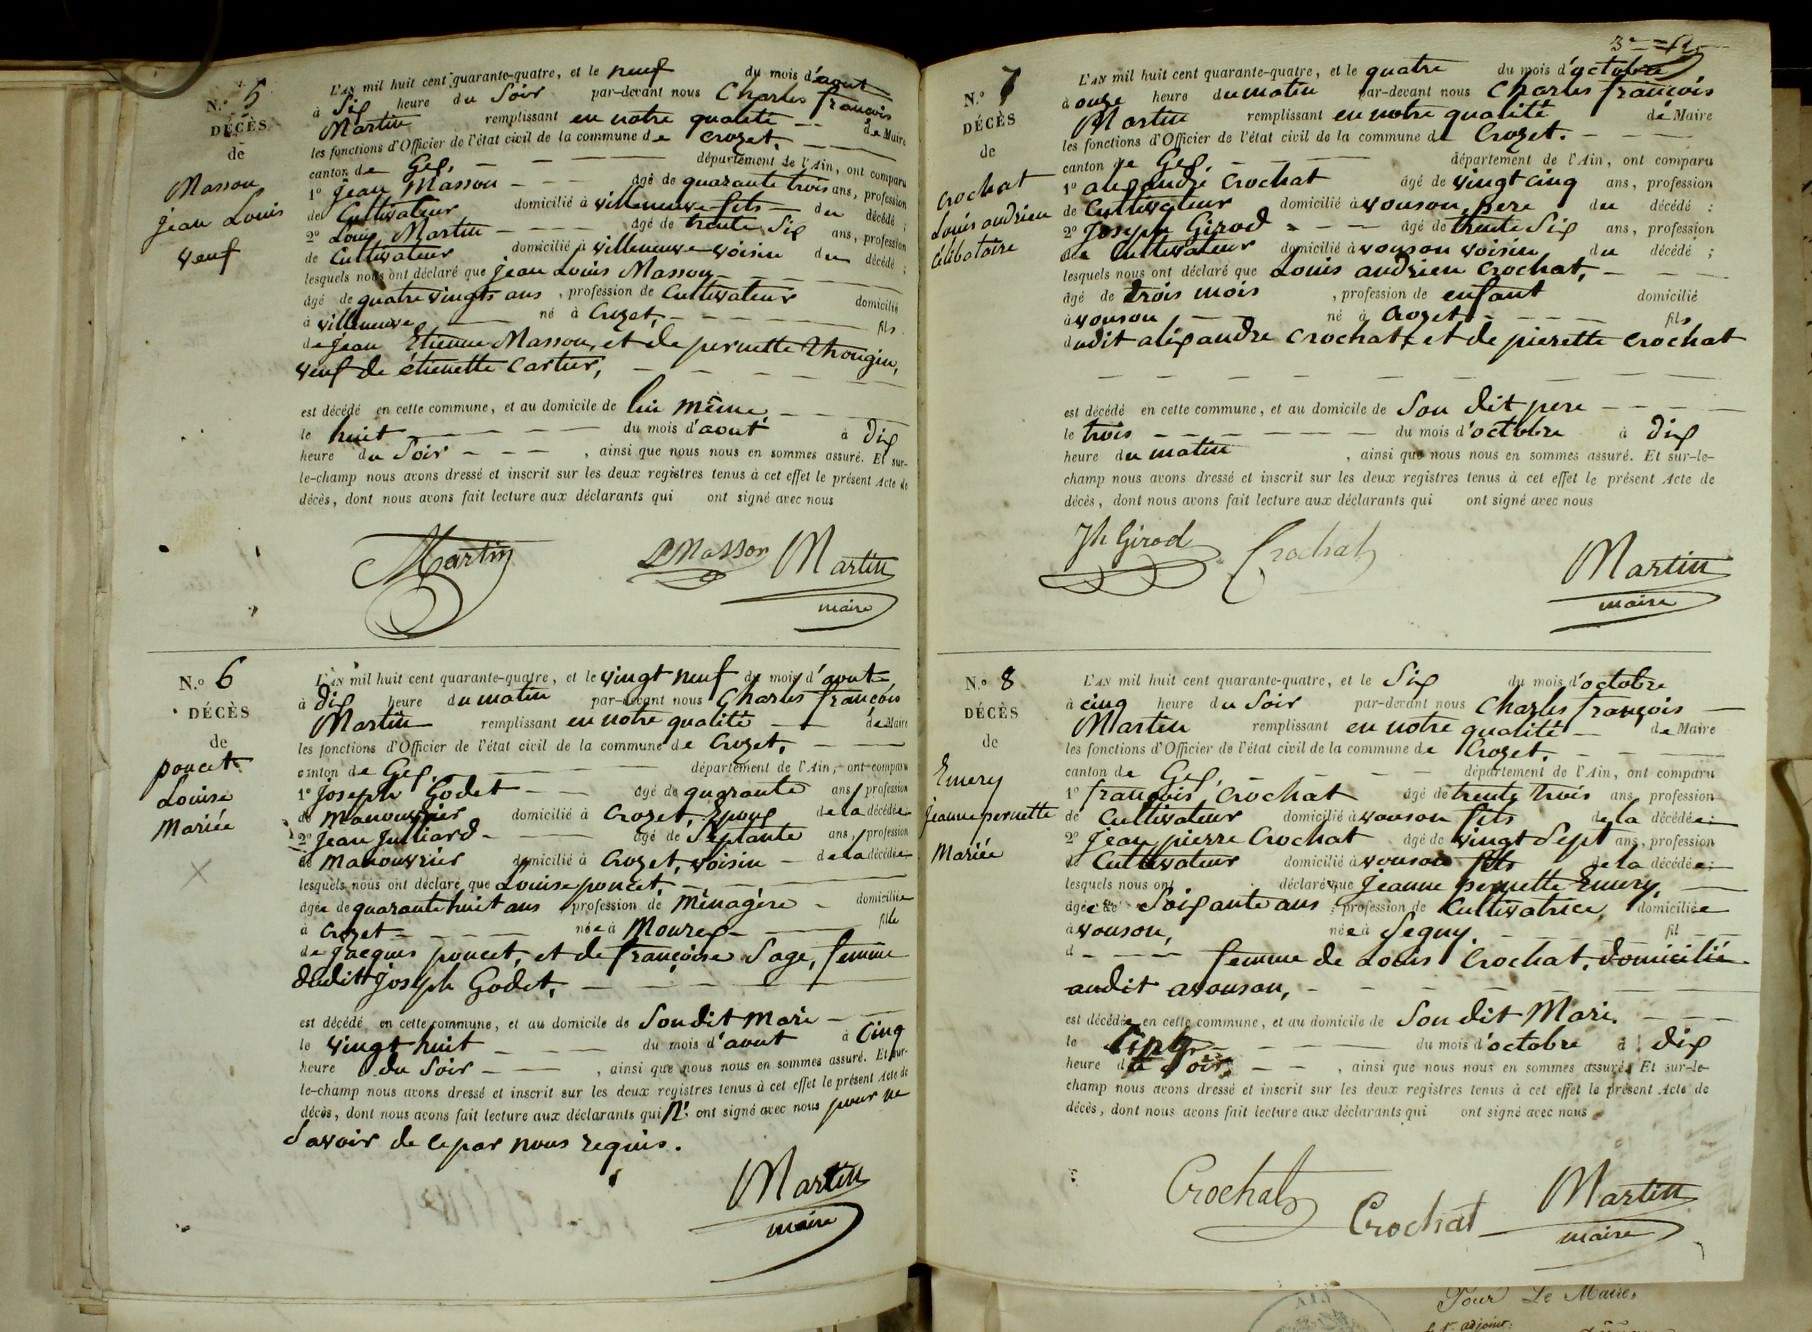 N.° 5
DÉCÈS
de
Masson
jean Louis
veuf
L'AN mil huit cent quarante-quatre, et le neuf du mois d'aout
à Six heure du Soir par-devant nous Charles françois
Martin remplissant en notre qualité de Maire
les fonctions d'Officier de l'état civil de la commune de Crozet.
canton de Gex, département de l'Ain, ont comparu
1° jean Masson âgé de quarante trois ans, profession
de Cultivateur domicilié à villeneuve fils du décédé ;
2° Louis Martin âgé de trente Six ans, profession
de Cultivateur domicilié à villeneuve voisin du décédé ;
lesquels nous ont déclaré que jean Louis Masson
âgé de quatre vingts ans , profession de Cultivateur domicilié
à villeneuve né à Crozet, fils
de jean Etienne Masson, et de pernette Thougin,
veuf de étienette Cartier,
est décédé en cette commune, et au domicile de lui même,
le huit du mois d'aout à Dix
heure du Soir , ainsi que nous nous en sommes assuré. Et sur-
le-champ nous avons dressé et inscrit sur les deux registres tenus à cet effet le présent Acte de
décès, dont nous avons fait lecture aux déclarants qui ont signé avec nous
Martin Masson Martin
maire
N.° 6
DÉCÈS
de
poncet
Louise
Mariée
L'AN mil huit cent quarante-quatre, et le vingt neuf du mois d'aout
à dix heure du matin par-devant nous Charles françois
Martin remplissant en notre qualité de Maire
les fonctions d'Officier de l'état civil de la commune de Crozet,
canton de Gex, département de l'Ain, ont comparu
1° joseph Godet âgé de quarante ans, profession
de manouvrier domicilié à Crozet, Epoux de la décédée
2° jean julliard âgé de Septante ans, profession
de manouvrier domicilié à Crozet, voisin de la décédée
lesquels nous ont déclaré que Louise poncet,
âgée de quarante huit ans profession de Ménagère domiciliée
à Crozet née à Mourex fille
de jacques poncet, et de françoise Sage, femme
dudit joseph Godet,
est décédé en cette commune, et au domicile de Son dit Mari
le vingt huit du mois d'aout à Cinq
heure du Soir , ainsi que nous nous en sommes assuré. Et sur-
le-champ nous avons dressé et inscrit sur les deux registres tenus à cet effet le présent Acte de
décès, dont nous avons fait lecture aux déclarants qui n' ont signé avec nous pour ne
Savoir de ce par nous requis.
Martin
maire
N.° 7
DÉCÈS
de
Crochat
Louis andrien
Célibataire
L'AN mil huit cent quarante-quatre, et le quatre du mois d'octobre
à onze heure du matin par-devant nous Charles françois
Martin remplissant en notre qualité de Maire
les fonctions d'Officier de l'état civil de la commune de Crozet.
canton de Gex, département de l'Ain, ont comparu
1° alexandre Crochat âgé de vingt cinq ans, profession
de Cultivateur domicilié à vouson, pere du décédé ;
2° joseph Girod âgé de trente Six ans, profession
de Cultivateur domicilié à vouson voisin du décédé ;
lesquels nous ont déclaré que Louis andrien Crochat,
âgé de trois mois , profession de enfant domicilié
à vouson né à Crozet fils
dudit alexandre Crochat, et de pierette Crochat
est décédé en cette commune, et au domicile de Son dit pere
le trois du mois d'octobre à dix
heure du matin , ainsi que nous nous en sommes assuré. Et sur-le-
champ nous avons dressé et inscrit sur les deux registres tenus à cet effet le présent Acte de
décès, dont nous avons fait lecture aux déclarants qui ont signé avec nous
Jh Girod Crochat Martin
maire
N.° 8
DÉCÈS
de
Emery
jeanne pernette
Mariée
L'AN mil huit cent quarante-quatre, et le Six du mois d'octobre
à cinq heure du Soir par-devant nous Charles françois
Martin remplissant en notre qualité de Maire
les fonctions d'Officier de l'état civil de la commune de Crozet.
canton de Gex, département de l'Ain, ont comparu
1° françois Crochat âgé de trente trois ans profession
de Cultivateur domicilié à vouson fils de la décédée;
2° jean pierre Crochat âgé de vingt Sept ans, profession
de Cultivateur domicilié à vouson fils de la décédée;
lesquels nous ont déclaré que jeanne pernette Emery,
âgée de Soixante ans profession de Cultivatrice, domiciliée
à vouson, née à Segny. fil
d femme de Louis Crochat, domicilié
audit avouson,
est décédée en cette commune, et au domicile de Son dit Mari.
le Cinq du mois d'octobre à dix
heure du Soir, , ainsi que nous nous en sommes assuré. Et sur-le-
champ nous avons dressé et inscrit sur les deux registres tenus à cet effet le présent Acte de
décès, dont nous avons fait lecture aux déclarants qui ont signé avec nous
Crochat Crochat Martin
maire
Pour Le Maire,